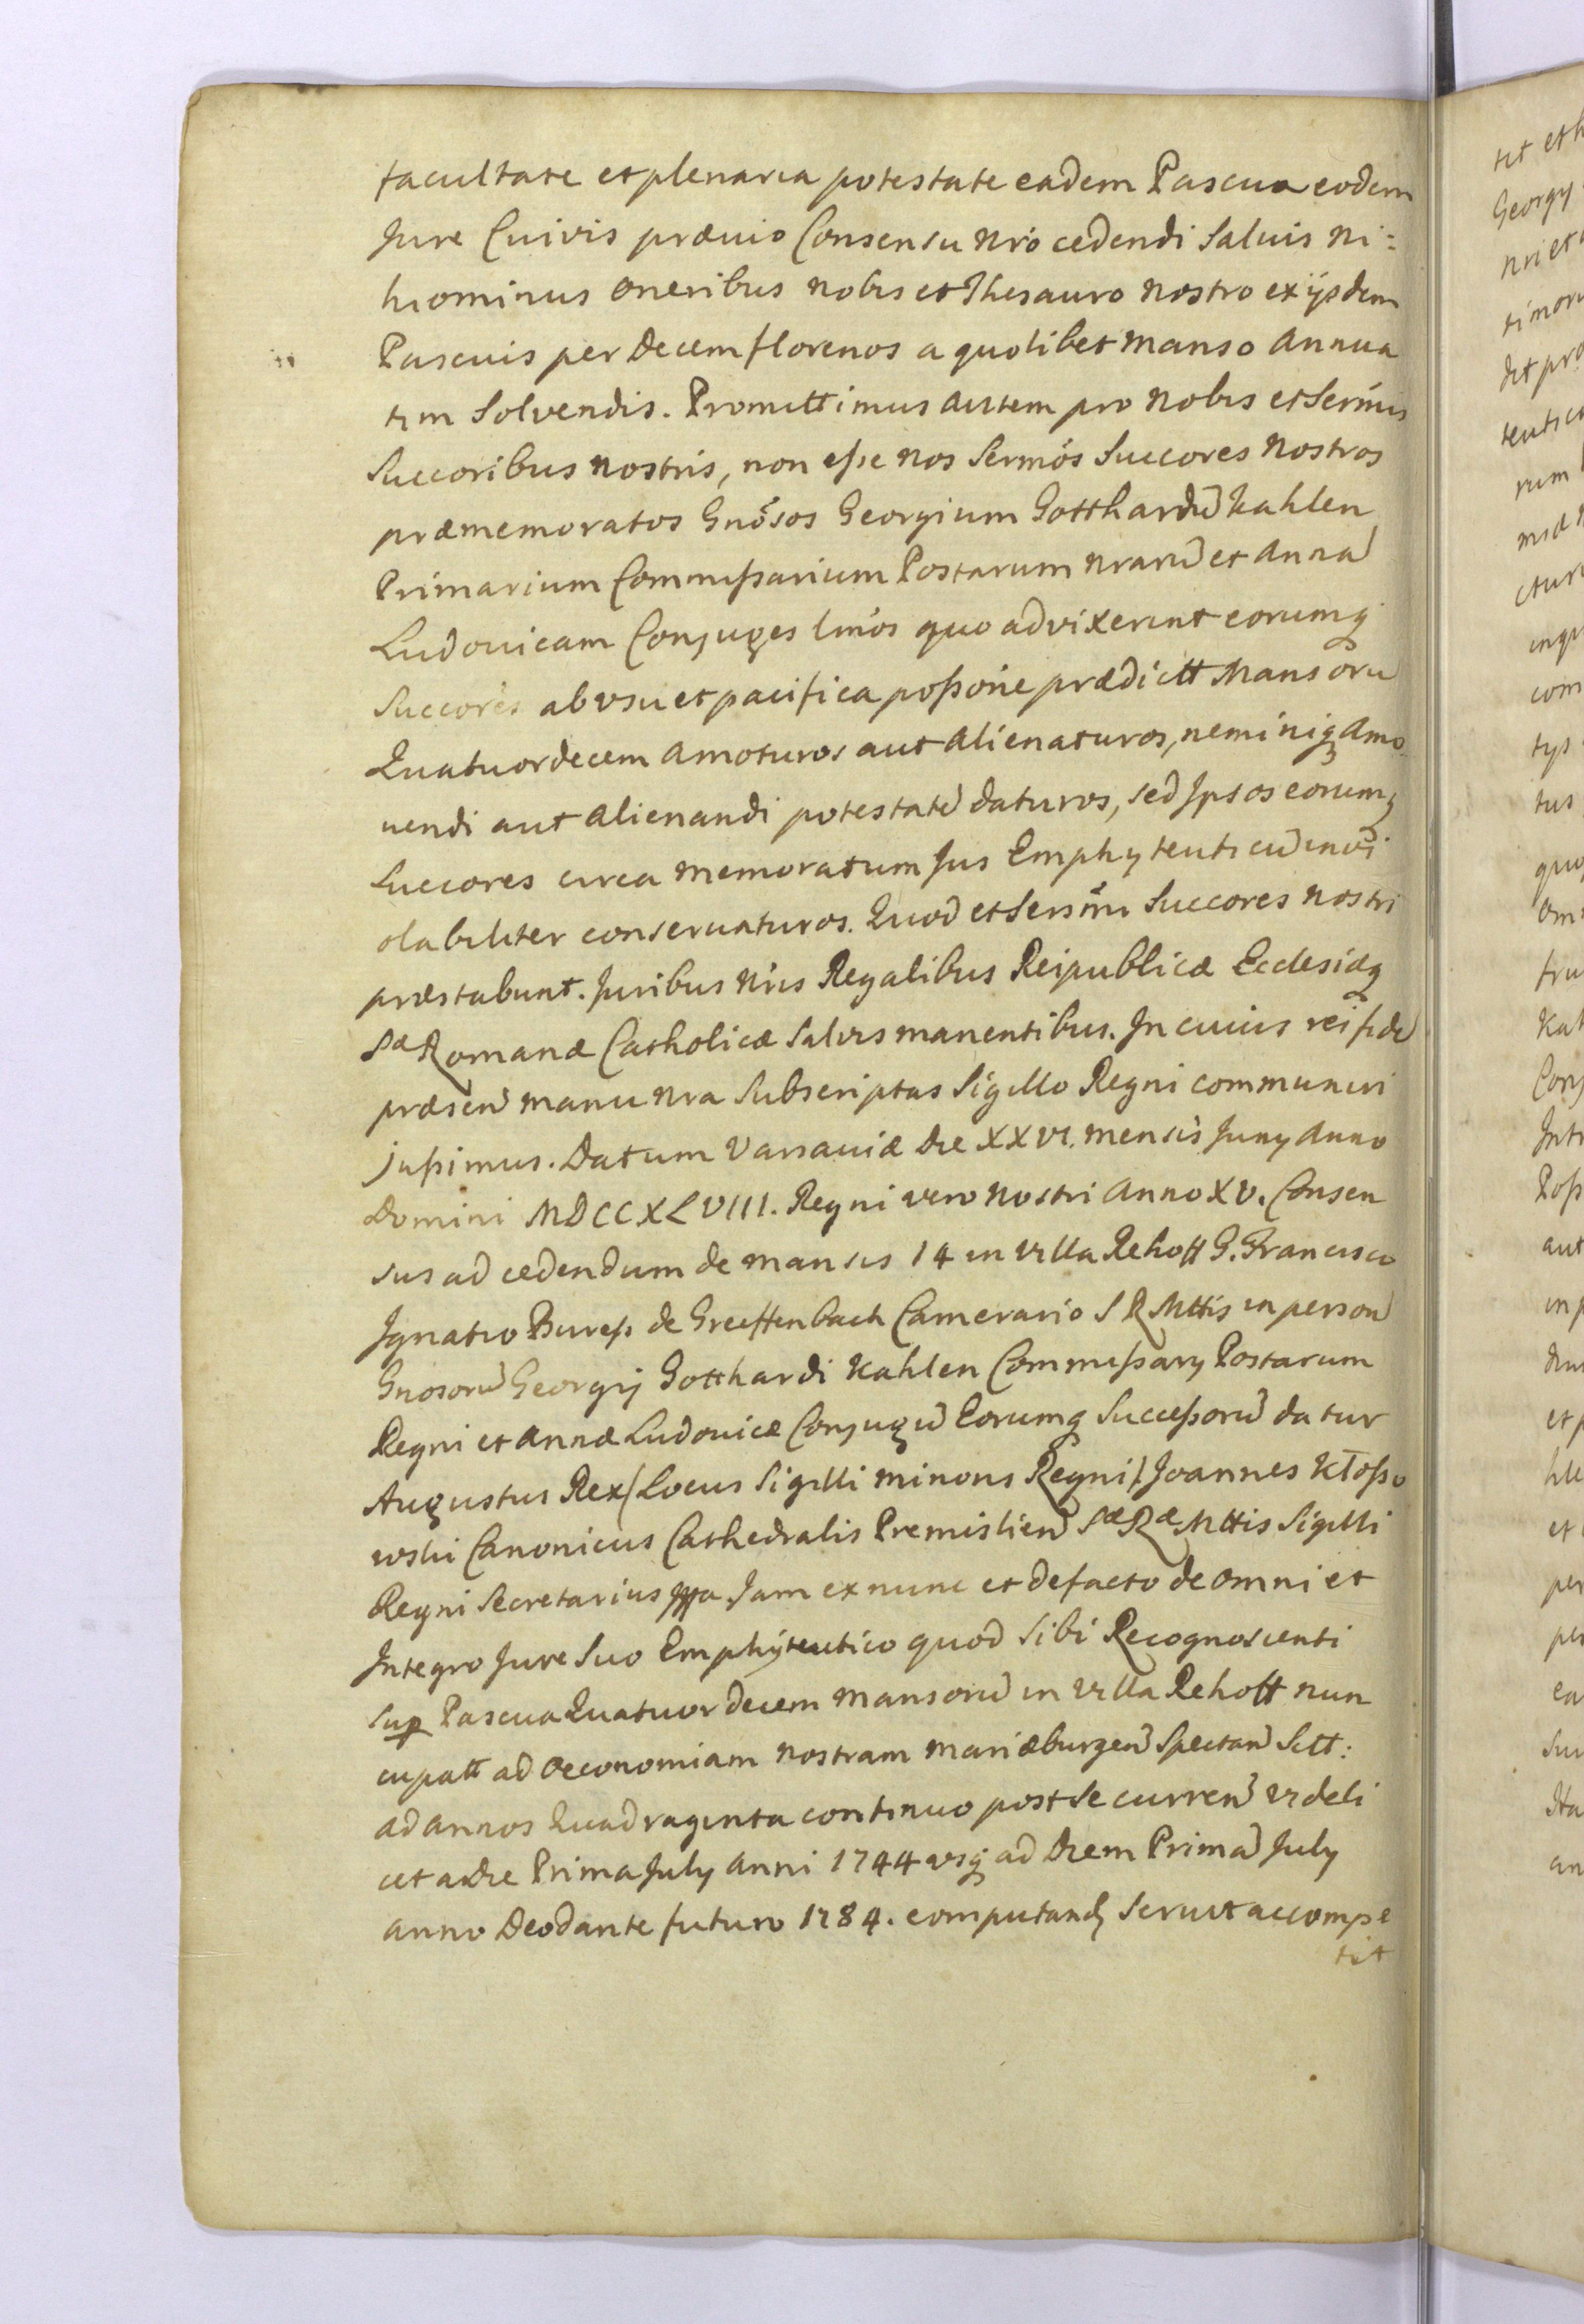 facultate et plenaria potestate eadem Pascua eodem
Jure Cuivis prævio Consensu Nro cedendi Salvis Ni=
hiominus Oneribus nobis et Thesauro Nostro ex ijsdem
Pascuis per Decem florenos a quolibet Manso Annua
tim Solvendis. Promittimus Autem pro Nobis et Sermis
Succoribus Nostris, non esse Nos Sermós Succores Nostros
præmemoratos Gnosos Georgium Gotthardũ Kahlen
Primarium Commissarium Postarum Nrarũ et Annã
Ludovicam Conjuges lmos quo advixerint eorumq
Succores ab usu et pacifica possone prædictt Mansorũ
Quatuordecem Amoturos aut Alienaturos, neminiq Amo
uendi aut Alienandi potestatẽ daturos, sed Ipsos eorumq
Succores circa Memoratum Jus Emphyteuticũ invi
olabiliter conservaturos. Quod et Sermi Succores Nostri
præstabunt. Juribus Nris Regalibus Reipublicæ Ecclesiæq
Sæ Romanæ Catholicæ Salvis manentibus. In cuius rei fidẽ
præsen̄ manu Nra Subscriptas Sigillo Regni communiri
jussimus. Datum Varsaviæ Die XXVI. Mensis Juny Anno
Domini MDCCXLVIII. Regni vero Nostri Anno XV. Consen
sus ad cedendum de mansis 14 in Villa Rehoff G. Francisco
Ignatio Buress de Greiffenbach Camerario S R Mttis in person̄
Gnosorũ Georgij Gotthardi Kahlen Commissary Postarum
Regni et Annæ Ludovicæ Conjugũ Eorumq Successorũ datur
Augustus Rex (Locus Sigilli minoris Regni) Joannes Kłosso
wski Canonicus Cathedralis Premislien̄ Sæ Ræ Mttis Sigilli
Regni Secretarius Mpa Jam ex nunc et defacto de omni et
Integro Jure Suo Emphyteutico quod Sibi Recognoscenti
Sup Pascua Quatuor decem Mansorũ in Villa Rehoff nun
cupatt ad Oeconomiam Nostram Mariæburgen̄ Spectan̄ Sctt:
ad Annos Quadraginta continuo post Se curren̄ Videli
cet a Die Prima July Anni 1744 usq ad Diem Primã July
Anno Deo dante futuro 1784. computandȝ Servit ac compe
tit